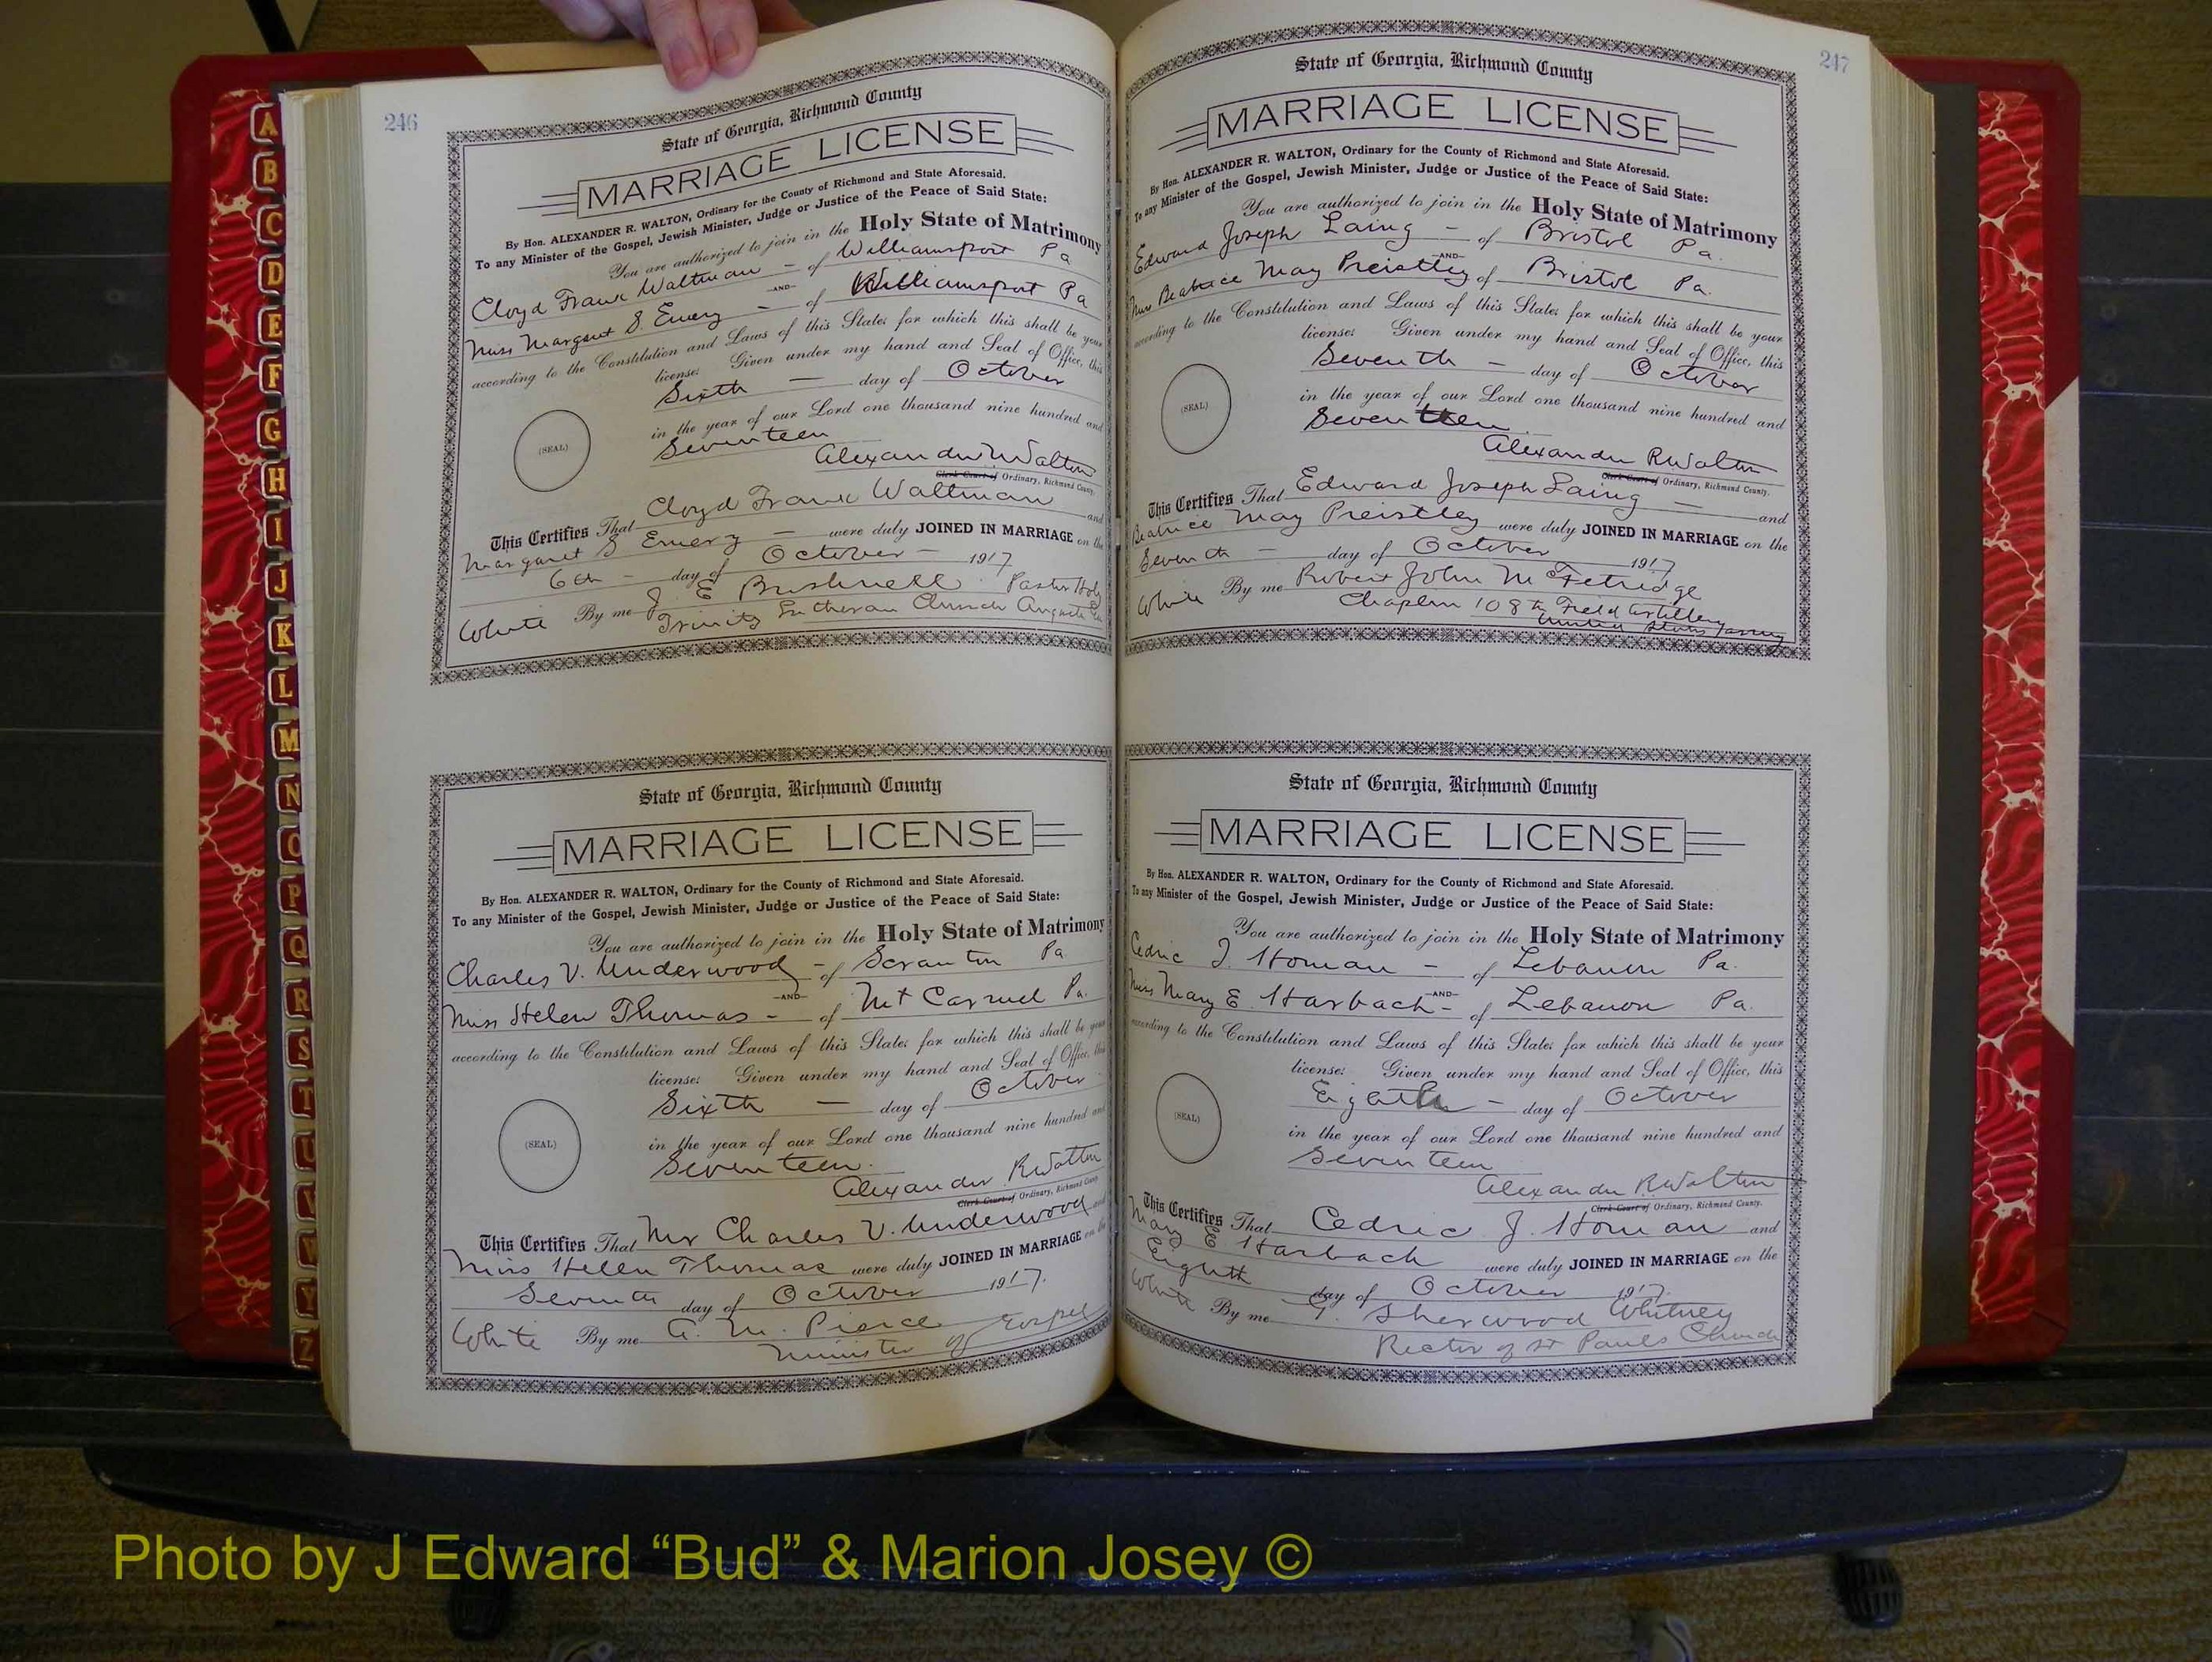 246
State of Georgia, Richmond County
MARRIAGE LICENSE
By Hon. ALEXANDER R. WALTON, Ordinary for the County of Richmond and State Aforesaid.
To any Minister of the Gospel, Jewish Minister, Judge or Justice of the Peace of Said State:
You are authorized to join in the Holy State of Matrimony
Cloyd Frank Waltman - of Williamsport Pa
-AND-
Miss Margaret S. Emery - of Williamsport Pa
according to the Constitution and Laws of this State; for which this shall be your
license: Given under my hand and Seal of Office, this
Sixth - day of October
in the year of our Lord one thousand nine hundred and
(SEAL)
Seventeen
Alexander R Walton
Clerk Court of Ordinary, Richmond County.
This Certifies That Cloyd Frank Waltman and
Margaret S Emery - were duly JOINED IN MARRIAGE on the
6th - day of October - 1917
White By me J E Bushnell Pastor Holy
Trinity Lutheran Church Augusta Ga
State of Georgia, Richmond County
MARRIAGE LICENSE
By Hon. ALEXANDER R. WALTON, Ordinary for the County of Richmond and State Aforesaid.
To any Minister of the Gospel, Jewish Minister, Judge or Justice of the Peace of Said State:
You are authorized to join in the Holy State of Matrimony
Charles V. Underwood - of Scranton Pa
-AND-
Miss Helen Thomas - of Mt Carmel Pa.
according to the Constitution and Laws of this State; for which this shall be your
license: Given under my hand and Seal of Office, this
Sixth - day of October
(SEAL)
in the year of our Lord one thousand nine hundred and
Seventeen.
Alexander R Walton
Clerk Court of Ordinary, Richmond County
This Certifies That Mr Charles V. Underwood and
Miss Helen Thomas were duly JOINED IN MARRIAGE on the
Seventh day of October 1917.
White By me A. M. Pierce
Minister of Gospel
247
State of Georgia, Richmond County
MARRIAGE LICENSE
By Hon. ALEXANDER R. WALTON, Ordinary for the County of Richmond and State Aforesaid.
To any Minister of the Gospel, Jewish Minister, Judge or Justice of the Peace of Said State:
You are authorized to join in the Holy State of Matrimony
Edward Joseph Laing - of Bristol Pa.
-AND-
Miss Beatrice May Preistley of Bristol Pa.
according to the Constitution and Laws of this State; for which this shall be your
license: Given under my hand and Seal of Office, this
Seventh - day of October
(SEAL)
in the year of our Lord one thousand nine hundred and
Seventeen
Alexander R Walton
Clerk Court of Ordinary, Richmond County.
This Certifies That Edward Joseph Laing - and
Beatrice May Preistley were duly JOINED IN MARRIAGE on the
Seventh - day of October 1917
White By me Robert John McFetridge
Chaplin 108th Field Artillery
United States Army
State of Georgia, Richmond County
MARRIAGE LICENSE
By Hon. ALEXANDER R. WALTON, Ordinary for the County of Richmond and State Aforesaid.
To any Minister of the Gospel, Jewish Minister, Judge or Justice of the Peace of Said State:
You are authorized to join in the Holy State of Matrimony
Cedric J. Homan - of Lebanon Pa.
-AND-
Miss Mary E. Harbach - of Lebanon Pa.
according to the Constitution and Laws of this State; for which this shall be your
license: Given under my hand and Seal of Office, this
Eighth - day of October
(SEAL)
in the year of our Lord one thousand nine hundred and
Seventeen
Alexander R Walton
Clerk Court of Ordinary, Richmond County.
This Certifies That Cedric J. Homan and
Mary E Harbach were duly JOINED IN MARRIAGE on the
Eighth day of October 1917.
White By me G. Sherwood Whitney
Rector of St Pauls Church
A
B
C
D
E
F
G
H
I
J
K
L
M
N
O
P
Q
R
S
T
U
V
W
Y
Z
Photo by J Edward “Bud” & Marion Josey ©